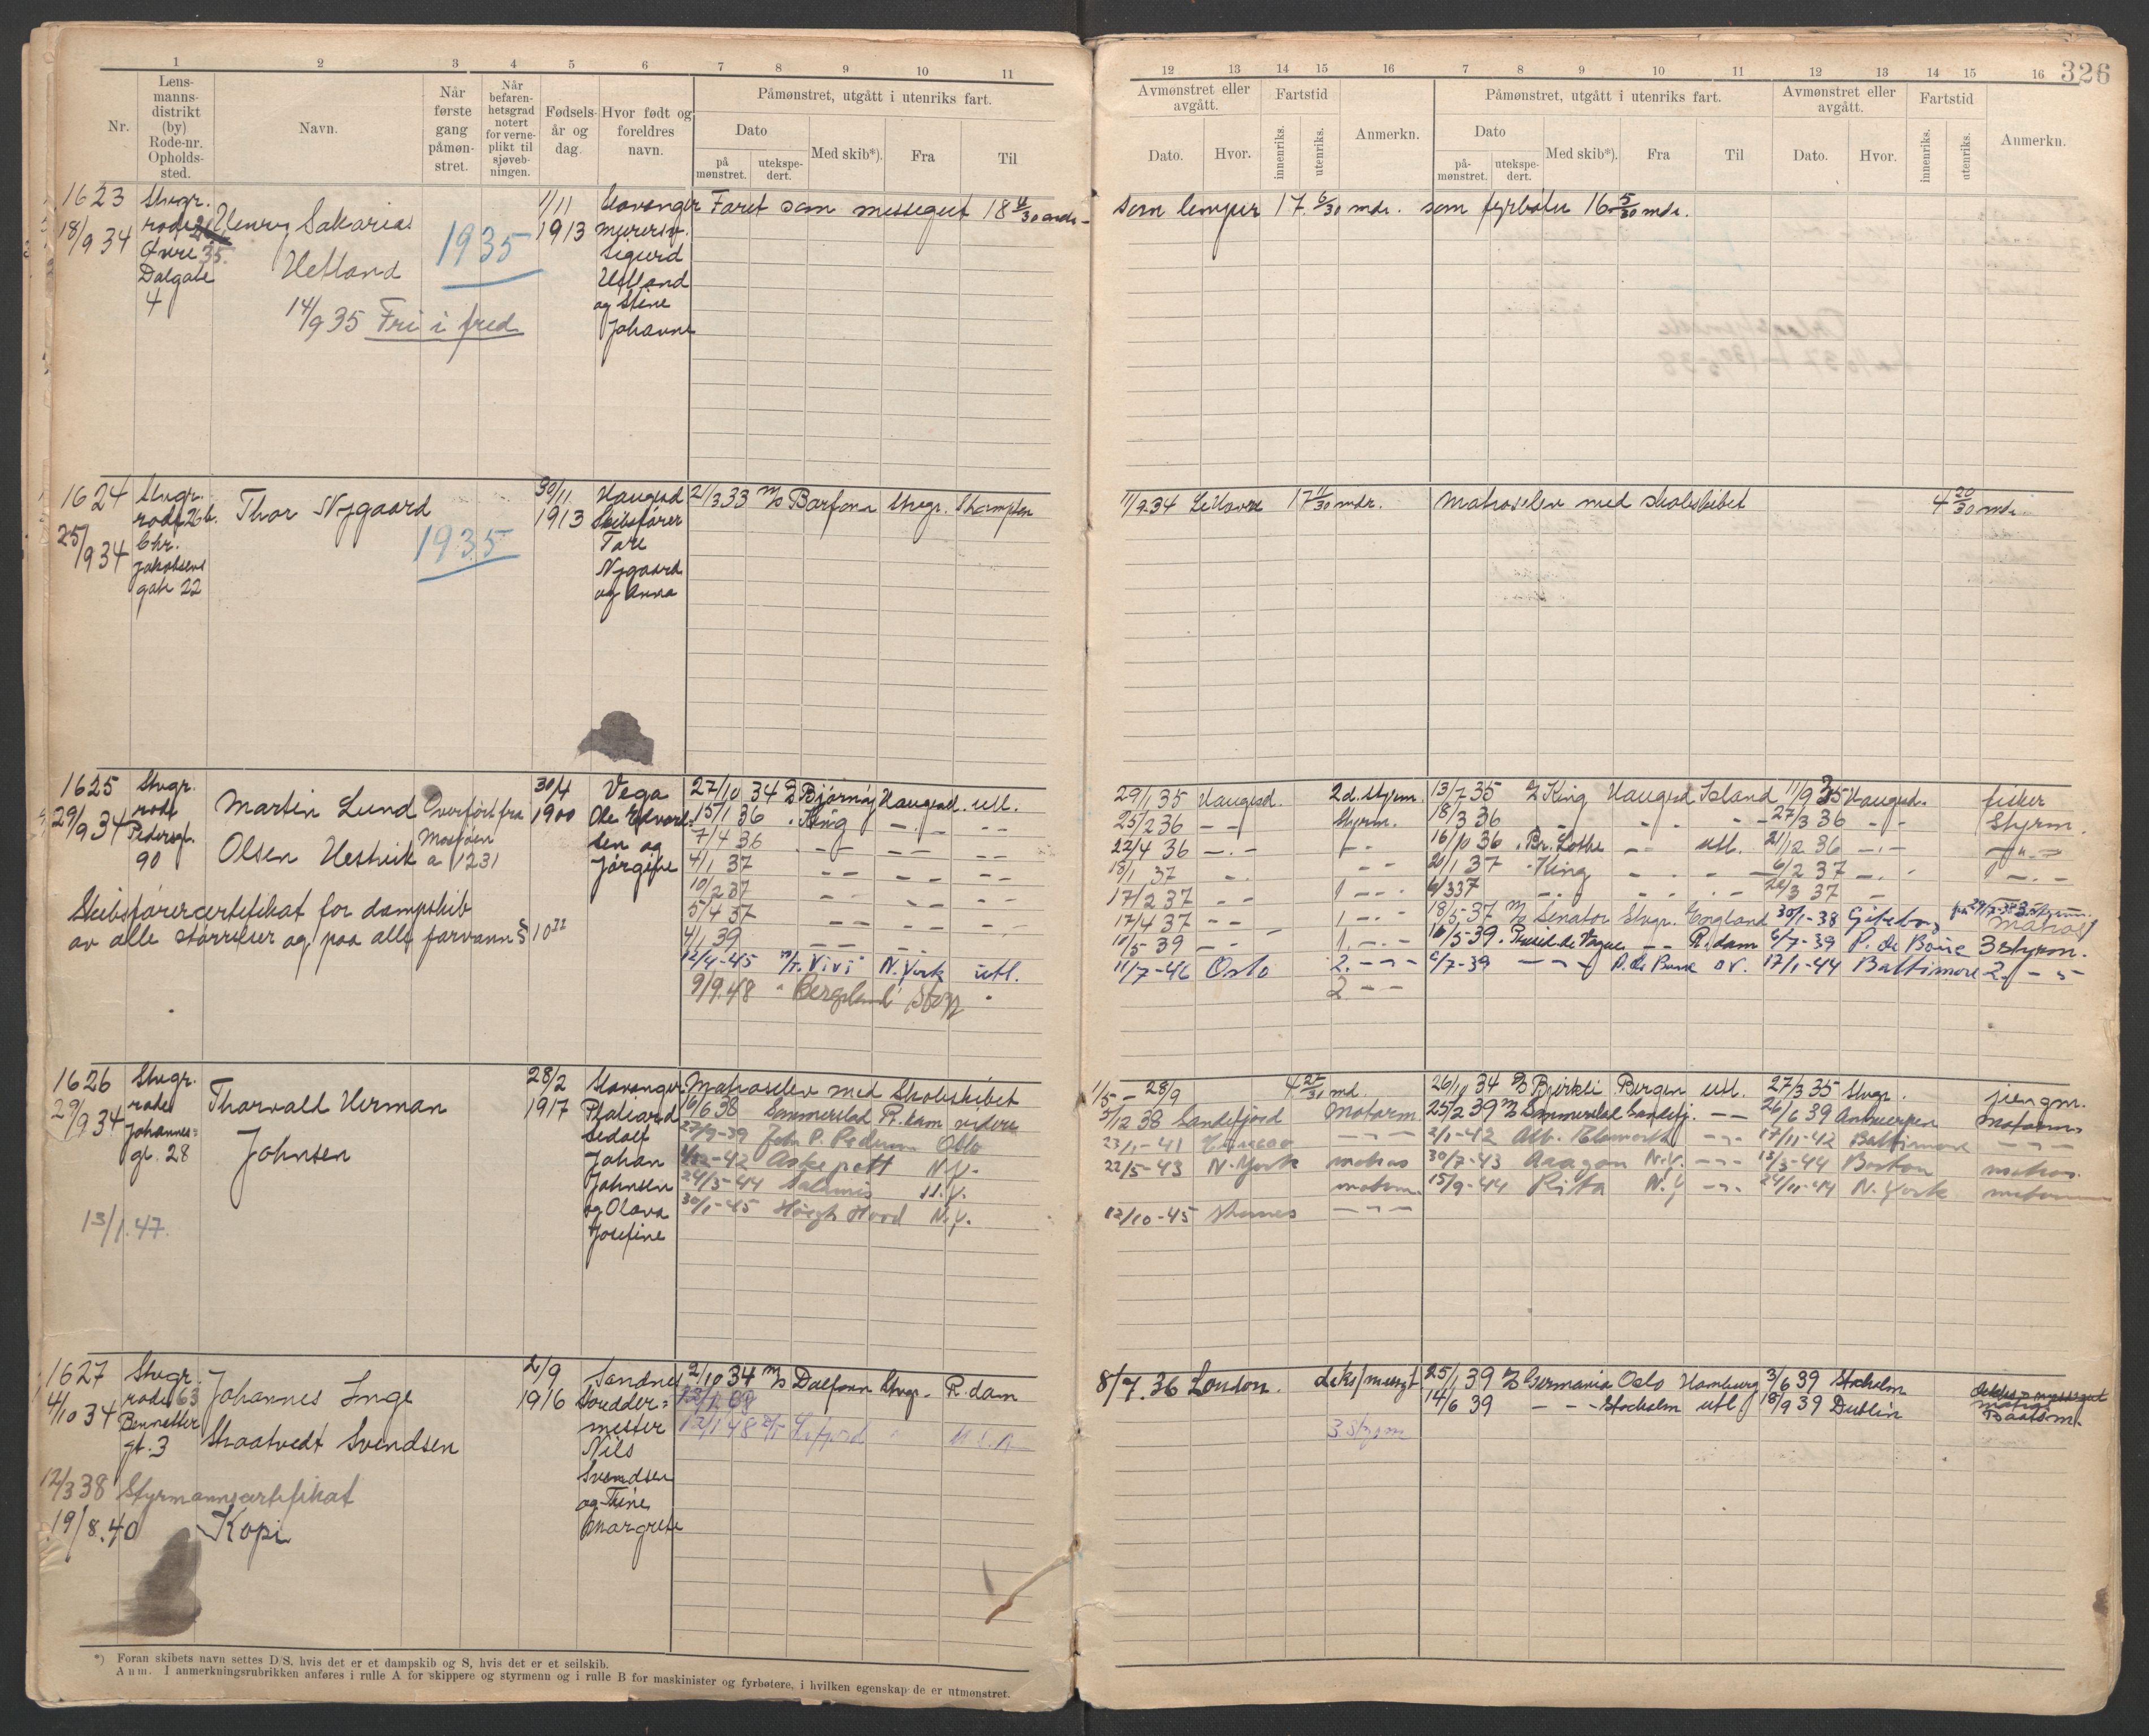 326
1 2 3 4 5 6 7 8 9 10 11
Nr.
Lens-
manns-
distrikt
(by)
Rode-nr.
Opholds-
sted.
Navn.
Når
første
gang
påmøn-
stret.
Når
befaren-
hetsgrad
notert
for verne-
plikt til
sjøveb-
ningen.
Fødsels-
år og
dag.
Hvor født og
foreldres
navn.
Påmønstret, utgått i utenriks fart.
Dato
på
mønstret.
utekspe-
dert.
Med skib*).
Fra
Til
12 13 14 15 16 7 8 9 10 11 12 13 14 15 16
Avmønstret eller
avgått.
Dato.
Hvor.
Fartstid
innenriks.
utenriks.
Anmerkn.
Påmønstret, utgått i utenriks fart.
Dato
på-
mønstret.
utekspe-
dert.
Med skib*).
Fra
Til
Avmønstret eller
avgått.
Dato.
Hvor.
Fartstid
innenriks.
utenriks.
Anmerkn.
1623
18/9 34
Stvgr.
rode
Øvre 35.
Dalgate
4
Henry Sakarias
Hetland
1935
14/9 35 Fri i fred
1/11
1913
Stavanger
murersv.
Sigurd
Hetland
og Stine
Johanne
Faret som messegut 18 mdr.-
som lemper 17 6/30 mdr. som fyrbøter 16 5/30 mdr.
1624
25/9 34
Stvgr.
rode 26b.
Chr.
Jakobsens
gate 22
Thor Nygaard
1935
30/11
1913
Haugesd
Skibsfører
Tore
Nygaard
og Anna
21/3 33 M/S Barfonn Stvgr. Sthampton
11/9 34 Le Havre 17 11/30 mdr. Matroselev med skoleskibet 4 20/30 mdr.
1625
29/9 34
Stvgr.
rode
Pedersgt.
90
Martin Lund
Olsen Hestvik
Overført fra
Mosjøen
a 1231
30/4
1900
Vega
Ole Edvard=
sen og
Jørgine
Skibsførercertifikat for dampskib
av alle størrelser og paa alle farvann § 10 II
27/10 34 D/S Bjørnøy Haugesd. utl.
15/1 36 " King - . - - -
7/4 36 - - - - - -
4/1 37 - - - - - -
10/2 37 - - - - - -
5/4 37 - - - - - -
4/1 39 - - - - - -
12/4-45 M/T. Vivi N. York utl.
9/9.48 " Bergeland Stvgr "
29/1 35 Haugesd. 2d. styrm. 13/7 35 D/S King Haugesd Island 11/9 35 Haugesd. fisker
25/2 36 - - Styrm. 18/3 36 - - - - 27/3 36 - - Styrm.
22/4 36 - . - - - 16/10 36 " Br. Lothe - - utl. 21/12 36 - . - - " -
13/1 37 - . - - 20/1 37 - King - - - 6/2 37 - . -
17/2 37 - - 1 - . - 6/3 37 - . - - - 3 37 -
17/4 37 - - 1 - . - 18/5-37 M/S Senator Stvgr. England 30/1-38 Gøteborg Matros
10/5-39 - - 1. - . - 16/5-39 - - R.dam 6/7-39 3 styrm.
11/7-46 Oslo 2. - - - 6/7-39 - - - 17/1-44 Baltimore 2. - " -
2 - -
1626
29/9 34
Stvgr.
rode
Johannes=
gt. 28
Thorvald Herman
Johnsen
28/2
1917
Stavanger
Sedolf
Johan
Johnsen
og Olava
Josefine
13/1.47.
Matroselev med Skoleskibet
10/6 38 Sommerstad R.dam videre
27/9-39 John P. Pedersen Oslo
-42 Askepott N.Y.
24/3-44 Salamis N.Y.
30/1-45 Høegh Hood N.Y.
1/5 - 28/9 4 27/30 md. 26/10 34 D/S Bjørkli Bergen utl. 27/3 35 Stvgr. jungm.
3/12 38 Sandefjord Motorm. 25/2 39 M/S Sommerstad Sandefj. - - 26/6 39 Antwerpen Motorm
23/1-41 Curacao - - - 2/1-42 - - 17/11-42 Baltimore - - -
22/5-43 N. York matros 30/7-43 Aragon N.Y. - - 13/3-44 Boston matros.
motorm. 15/9-44 Rita N.Y - - 24/11-44 N. York motormann
12/10-45 - - -
1627
4/10 34
Stvgr.
rode 63
Bennetter
gt. 3
Johannes Inge
Skaatvedt Svendsen
2/9
1916
Sandnes
Skredder=
mester
Nils
Svendsen
og Trine
Margrete
12/3 38 Styrmannscertifikat
19/8.40 Kopi
2/10 34 M/S Dalfonn Stvgr. R.dam
12/1 48
8/7. 36 London. 25/1 39 D/S Germania Oslo Hamburg 3/6 39 Stockholm
14/6 39 - - - Stockholm utl 18/9 39 Dublin Baatsm.
3 styrm
*) Foran skibets navn settes D/S, hvis det er et dampskib og S, hvis det er et seilskib.
Anm. I anmerkningsrubrikken anføres i rulle A for skippere og styrmenn og i rulle B for maskinister og fyrbøtere, i hvilken egenskap de er utmønstret.